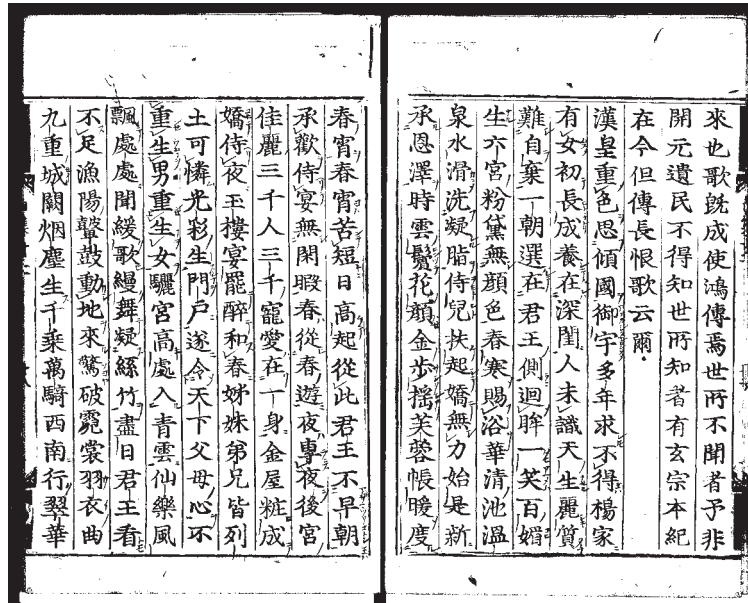 來也歌旣成使鴻傳焉世所不聞者予非
開元遺民不得知世所知者有玄宗本紀
在今但傳長恨歌云爾
漢皇重色思傾國御宇多年求不得楊家
有女初長成養在深閨人未識天生麗質
難自棄一朝選在君王側迴眸一笑百媚
生六宮粉黛無顔色春寒賜浴華清池溫
泉水滑洗凝脂侍兒扶起嬌無力始是新
承恩澤時雲鬢花顔金歩搖芙蓉帳暖度
春宵春宵苦短日高起從此君王不早朝
承歡侍宴無閑暇春從春遊夜專夜後宮
佳麗三千人三千寵愛在一身金屋粧成
嬌侍夜玉樓宴罷醉和春姊妹弟兄皆列
土可憐光彩生門戸遂令天下父母心不
重生男重生女驪宮高處入青雲仙樂風
飄處處聞緩歌縵舞凝絲竹盡日君王看
不足漁陽鼙鼓動地來驚破霓裳羽衣曲
九重城闕烟塵生千乘萬騎西南行翠華